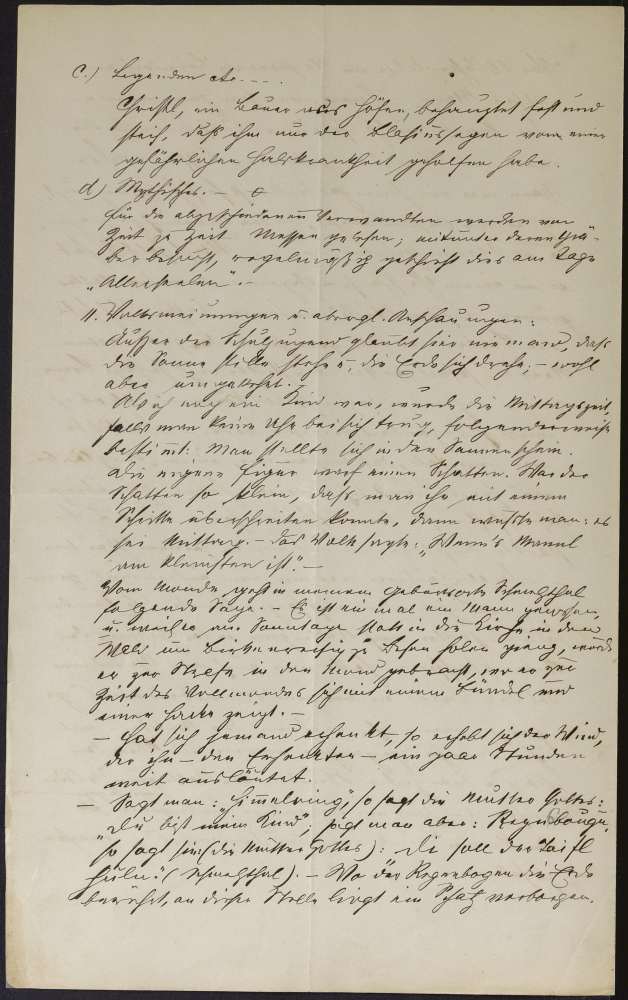 c.) Legenden etc. . . .
Christl, ein Bauer aus Höfen, behauptet fest und
steif, daß ihm nur der Blasiussegen vom einer
gefährlichen Halskrankheit geholfen habe.
d) Mythisches. –
Für die abgeschiedenen Verwandten werden von
Zeit zu Zeit Messen gelesen; mitunter deren Grä-
ber besucht, regelmäßig geschieht dies am Tage
„Allerseelen“. –
11. Volksmeinungen u. abergl. Anschauungen:
Außer der Schuljugend glaubt hier niemand, daß
die Sonne stille stehe u. die Erde sich drehe; – wohl
aber umgekehrt. –
Als ich noch ein Kind war, wurde die Mittagszeit,
falls man keine Uhr bei sich trug, folgenderweise
bestimmt: Man stellte sich in den Sonnenschein.
Die eigene Figur warf einen Schatten. War der
Schatten so klein, daß man ihn mit einem
Schritte überschreiten konnte, dann wußte man: es
sei Mittag. – Das Volk sagte: „Wenn's Mannl
am kleinsten ist“. –
Vom Monde geht in meinem Geburtsorte
folgende Sage. – Es ist einmal ein Mann gewesen,
u. weil er am Sonntage statt in die Kirche in den
Wald um Birkenreisig zu Besen holen ging, wurde
er zur Strafe in den Mond gebracht, wo er zur
Zeit des Vollmondes sich mit einem Bündel und
einer Hacke zeigt. –
– Hat sich jemand erhenkt, so erhebt sich der Wind,
der ihn – den Erhenkten – ein paar Stunden
weit ausläutet.
– Sagt man: „Himmelring“, so sagt die Mutter Gottes:
„Du bist mein Kind“; sagt man aber: Regnbougn,
so sagt sie (die Mutter Gottes): Di soll der Taifl
huln“. – Wo der Regenbogen die Erde
berührt, an dieser Stelle liegt ein Schatz verborgen.